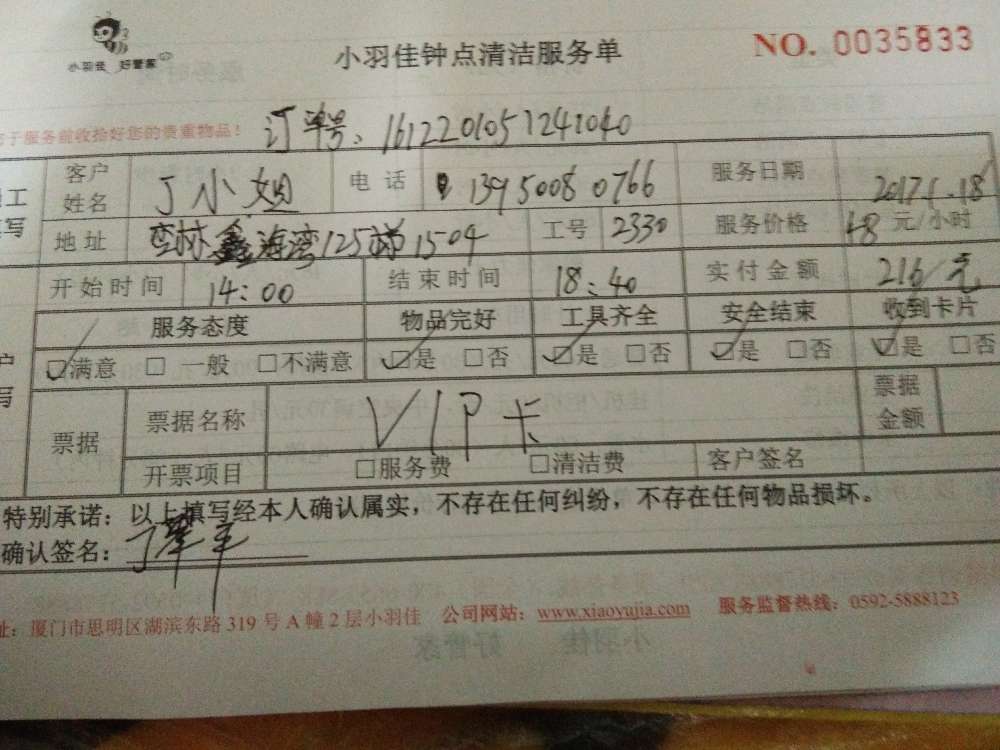 小羽佳 好管家
小羽佳钟点清洁服务单
NO. 0035833
于服务前收拾好您的贵重物品！
订单号：1612201051241040
工 客户姓名 丁小姐 电话 13950080766 服务日期 2017.1.18
写 地址 杏林鑫海湾125梯1504 工号 2330 服务价格 48元/小时
开始时间 14:00 结束时间 18:40 实付金额 216/元
服务态度 物品完好 工具齐全 安全结束 收到卡片
☑满意 □ 一般 □不满意 ☑是 □否 ☑是 □否 ☑是 □否 ☑是 □否
写 票据 票据名称 VIP卡 票据金额
开票项目 □服务费 □清洁费 客户签名
特别承诺：以上填写经本人确认属实，不存在任何纠纷，不存在任何物品损坏。
确认签名：
址：厦门市思明区湖滨东路 319 号 A 幢 2 层小羽佳 公司网站：www.xiaoyujia.com 服务监督热线：0592-5888123